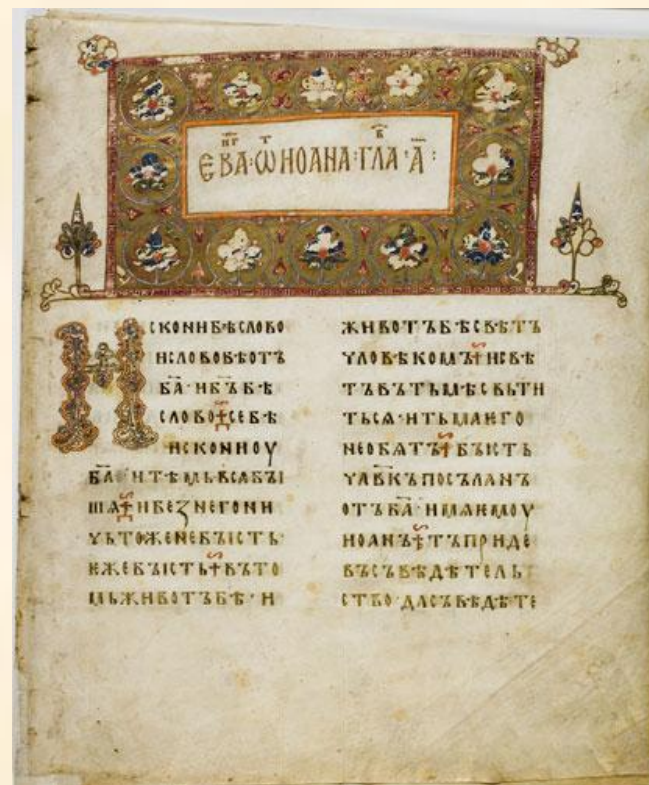 ЄВА҃Г·Ѿ ИОАНА·ГЛА҃В·А҃:
ИСКОНИБѢСЛОВО
ИСЛОВОБѢОТЪ
БА҃·ИБ҃ЪБѢ
СЛОВО·СЕБѢ
ИСКОНИОУ
БА҃·И ТѢМЬВСꙖБЪІ
ШѦ·ИБЕЗНЕГОНИ
ЧЬТОЖЕНЕБЪІСТЬ
ѤЖЕБЪІСТЬ·ВЪТО
МЬЖИВОТЪБѢ·И
ЖИВОТЪБѢСВѢТЪ
ЧЛОВѢКОМЪ·ИСВѢ
ТЪВЪТЬМѢСВЬТИ
ТЬСѦ·ИТЬМАѤГО
НЕОБѦТЪ·БЪІСТЬ
ЧЛ҃ВКЪПОСЪЛАНЪ
ОТЪБА҃·ИМѦѤМОУ
ИОАНЪ·ТЪПРИДЕ
ВЪСЪВѢДѢТЕЛЬ
СТВО·ДАСЪВѢДѢТЕ